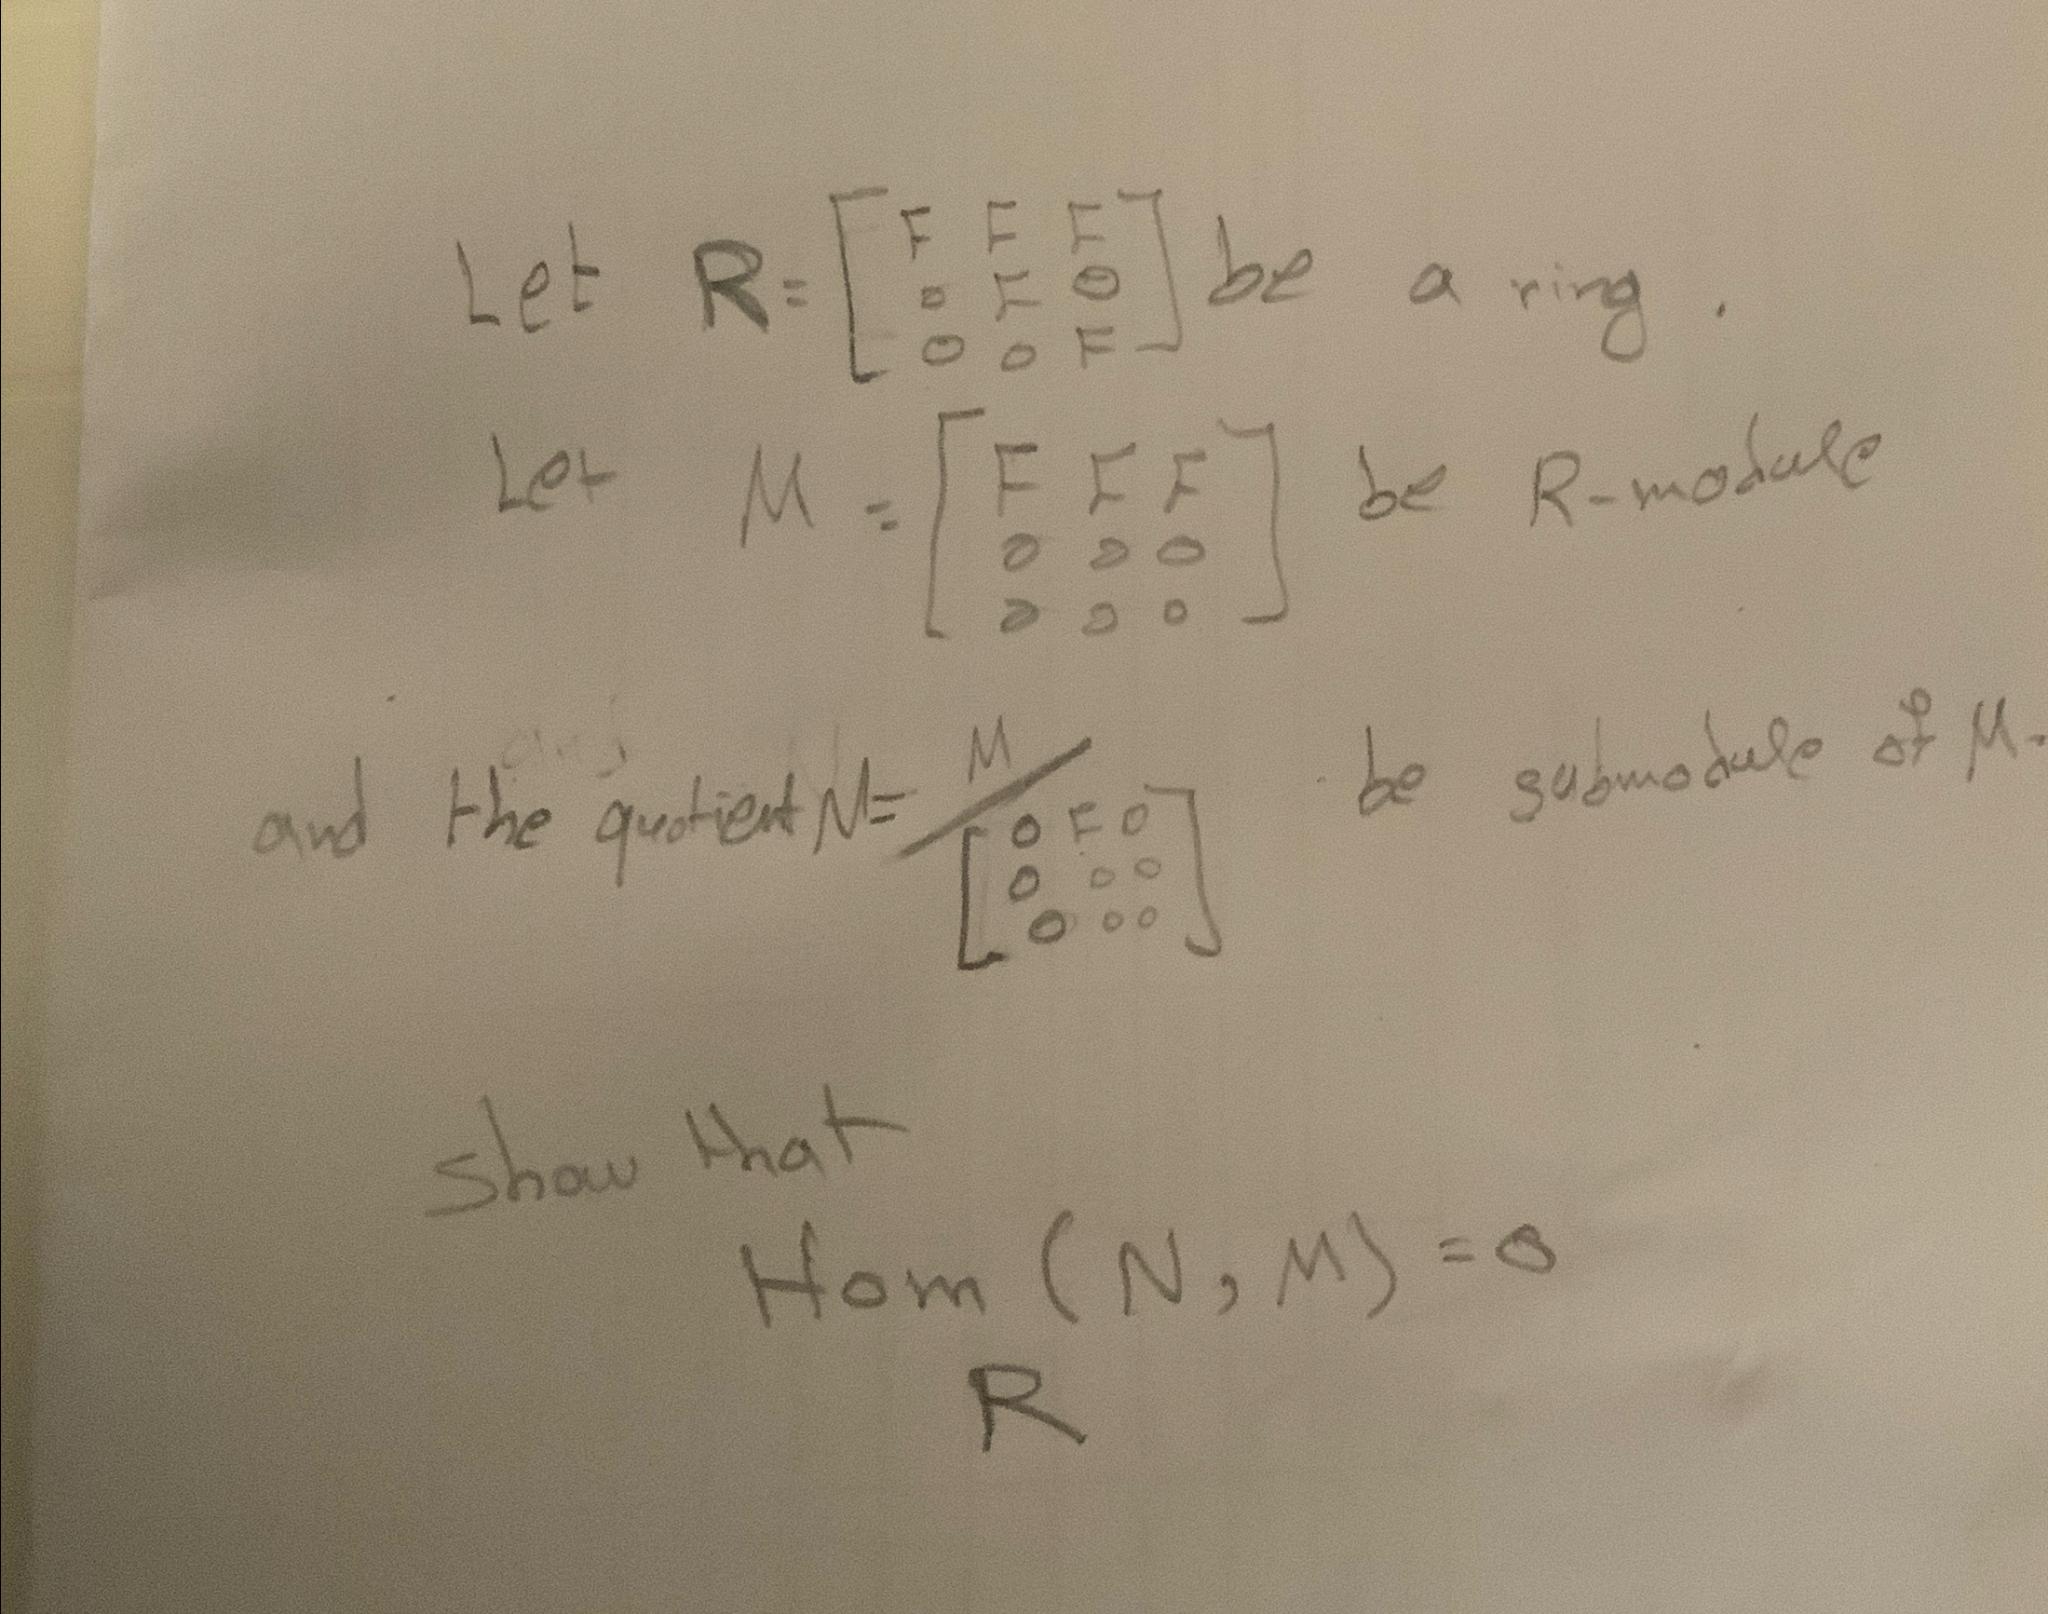 Let R = [F F F; 0 F 0; 0 0 F] be a ring.
Let M = [F F F; 0 0 0; 0 0 0] be R-module
and the quotient N = M / [0 F 0; 0 0 0; 0 0 0] be submodule of M.
show that
Hom (N, M) = 0
R